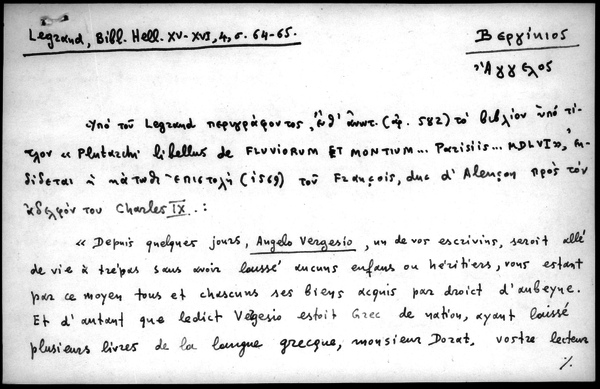 Legrand, Bibl. Hell. XV-XVI, 4, σ. 64-65.
Βεργίκιος
Ἄγγελος
Ὑπό τοῦ Legrand περιγράφοντος, ἔνθ' ἀνωτ. (ἀρ. 582) τό βιβλίον ὑπό τί-
τλον « Plutarchi libellus de FLUVIORUM ET MONTIUM... Parisiis... MDLVI», ἐκ-
δίδεται ἡ κάτωθι ἐπιστολή (1569) τοῦ François, duc d'Alençon πρὸς τόν
ἀδελφόν του Charles IX..:
« Depuis quelques jours, Angelo Vergesio, un de vos escrivins, seroit allé
de vie à trépas sans avoir laussé aucuns enfans ou héritiers, vous estant
par ce moyen tous et chascuns ses biens acquis par droict d'aubeyne.
Et d'autant que ledict Végesio estoit Grec de nation, ayant laissé
plusieurs livres de la langue grecque, monsieur Dorat, vostre lecteur
./.